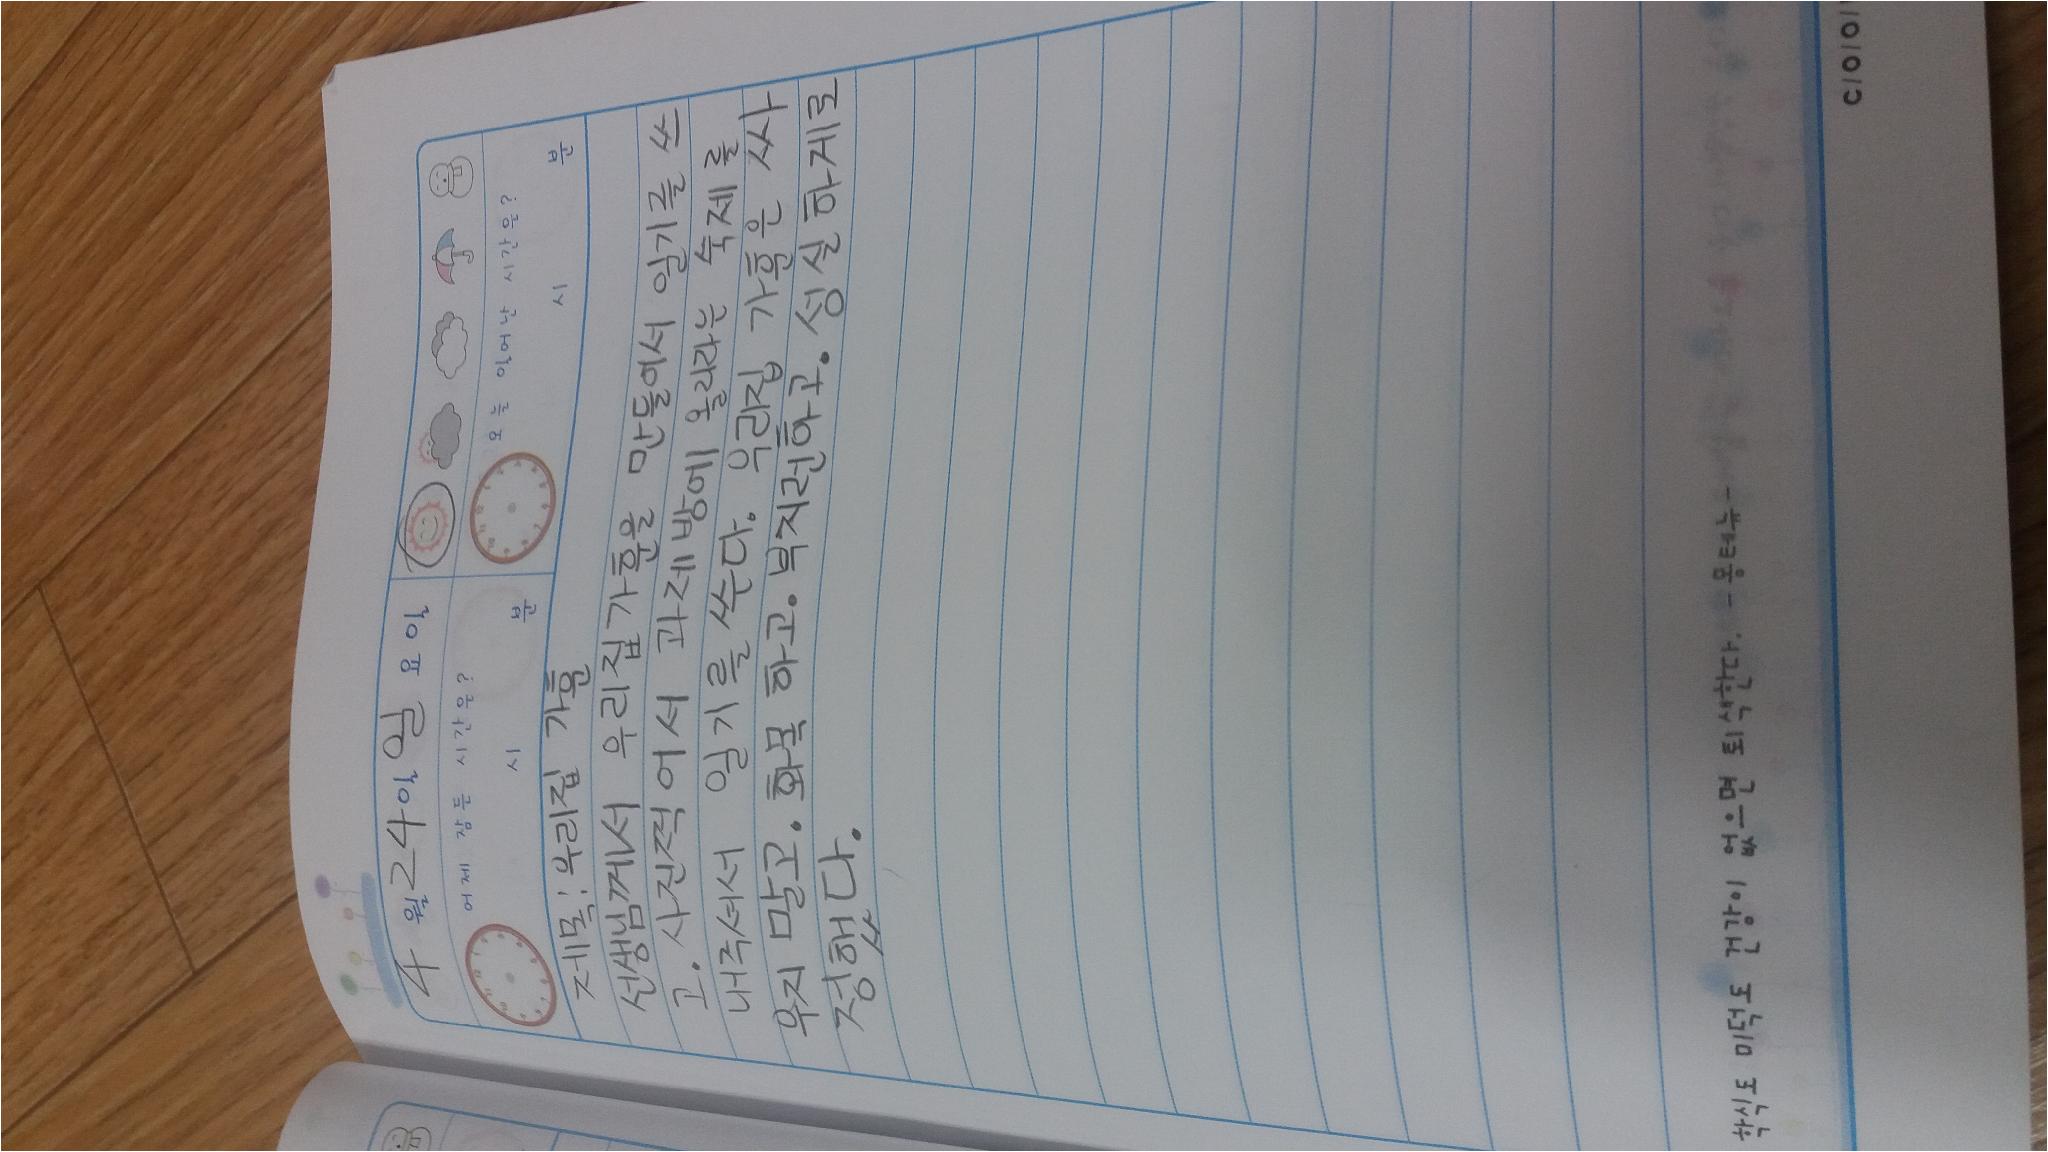 4 월 24 일 일 요일
어제 잠든 시간은?
시 분
오늘 일어난 시간은?
시 분
제목: 우리집 가훈
선생님께서 우리집가훈을 만들어서 일기를 쓰
고. 사진적어서 과제방에 올리라는 숙제를
내주셔서 일기를 쓴다. 우리집 가훈은 싸
우지 말고. 화목 하고. 부지런하고. 성실 하게로
정했다.
지식도 미덕도 건강이 없으면 퇴색한다. - 몽테뉴 -